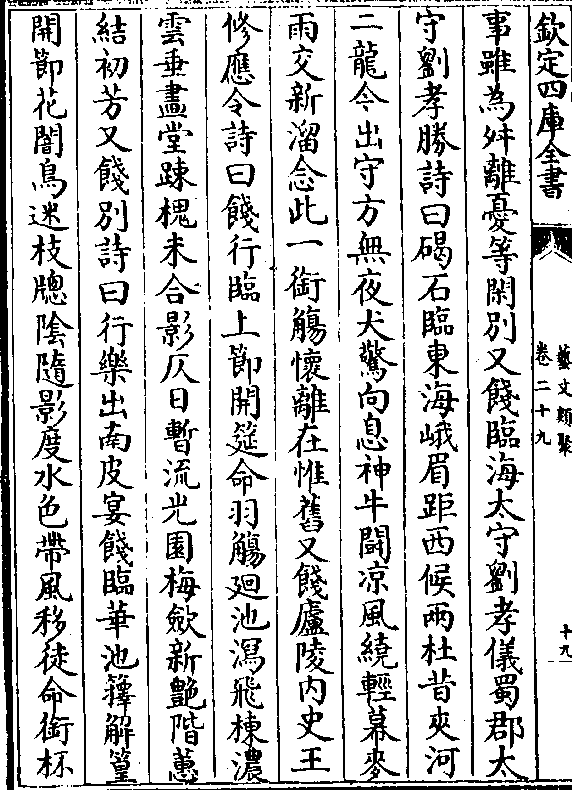 欽定四庫全書
藝文類聚
卷二十九
十九
事雖為舛離憂等閑别又餞臨海太守劉孝儀蜀郡太
守劉孝勝詩曰碣石臨東海峨眉距西候兩杜昔夾河
二龍今出守方無夜犬驚向息神牛鬭凉風繞輕幕麥
雨交新溜念此一銜觴懷離在惟舊又餞廬陵内史王
修應令詩曰餞行臨上節開筵命羽觴廻池瀉飛棟濃
雲垂畫堂踈槐未合影仄日暫流光園梅斂新艶階蕙
結初芳又餞别詩曰行樂出南皮宴餞臨華池籜解篁
開節花闇鳥迷枝牕陰隨影度水色帶風移徒命銜杯